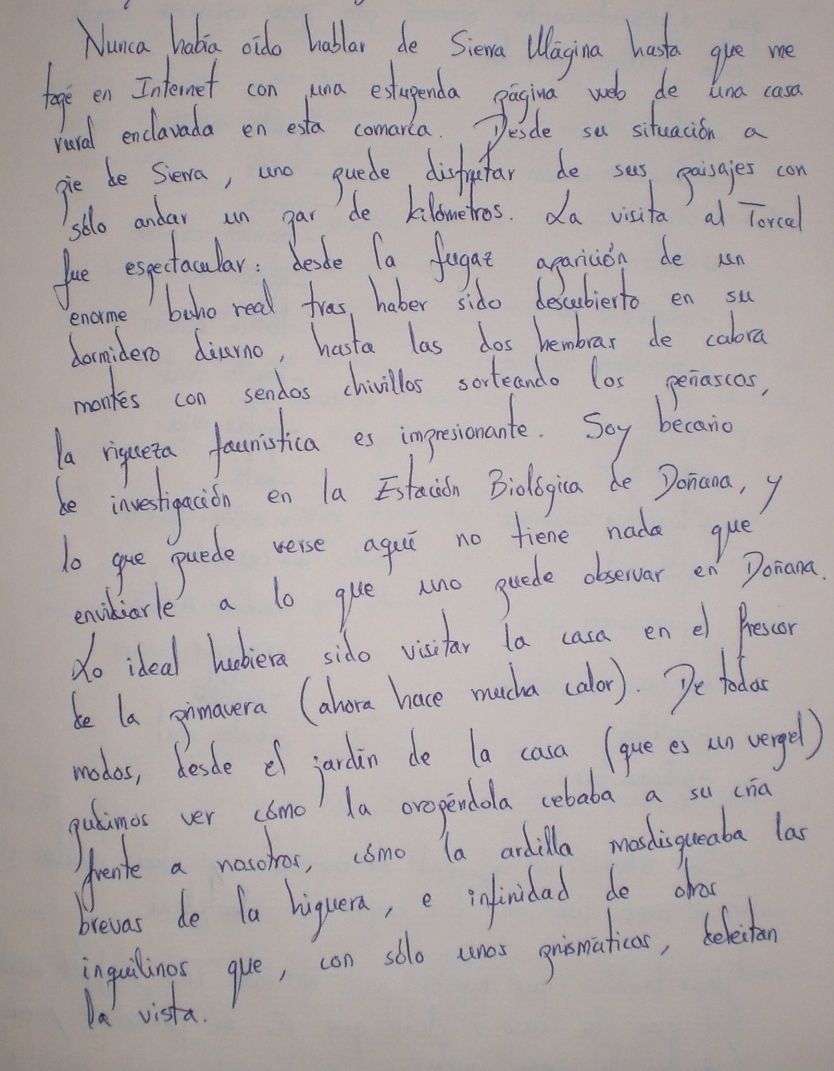 Nunca había oído hablar de Sierra Mágina hasta que me
topé en Internet con una estupenda página web de una casa
rural enclavada en esta comarca. Desde su situación a
pie de Sierra, uno puede disfrutar de sus paisajes con
sólo andar un par de kilómetros. La visita al Torcal
fue espectacular: desde la fugaz aparición de un
enorme buho real tras haber sido descubierto en su
dormidero diurno, hasta las dos hembras de cabra
montés con sendos chivillos sorteando los peñascos,
la riqueza faunística es impresionante. Soy becario
de investigación en la Estación Biológica de Doñana, y
lo que puede verse aquí no tiene nada que
envidiarle a lo que uno puede observar en Doñana.
Lo ideal hubiera sido visitar la casa en el frescor
de la primavera (ahora hace mucha calor). De todos
modos, desde el jardín de la casa (que es un vergel)
pudimos ver cómo la oropéndola cebaba a su cría
frente a nosotros, cómo la ardilla mosdisqueaba las
brevas de la higuera, e infinidad de otros
inquilinos que, con sólo unos prismáticos, deleitan
la vista.